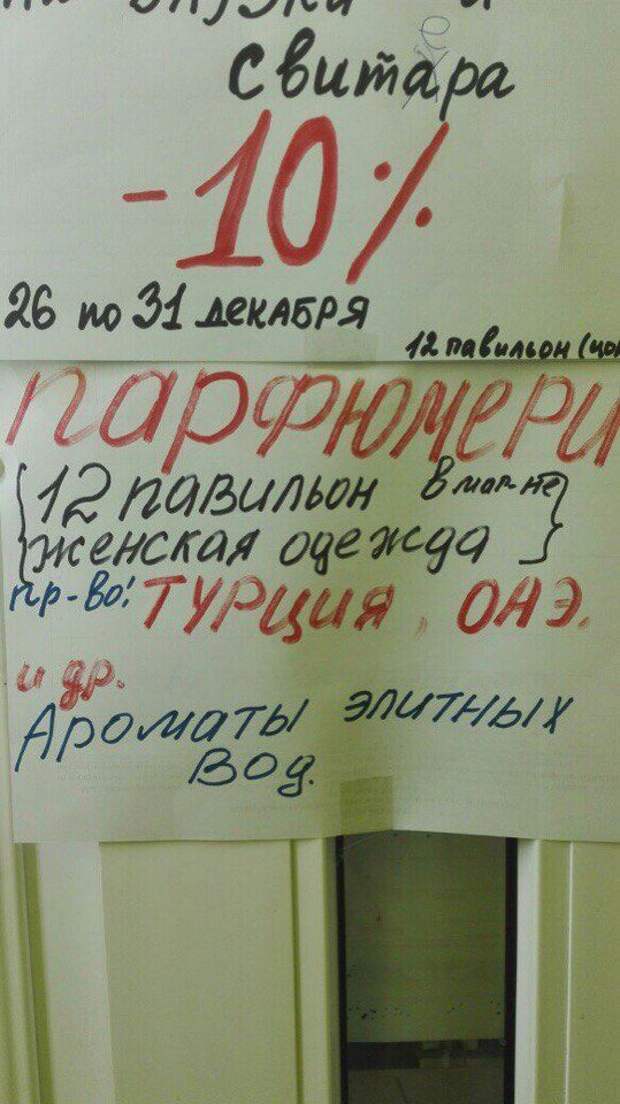 свитара
-10%
26 по 31 декабря
12 павильон (цок
ПАРФЮМЕРИ
12 павильон в маг-не
женская одежда
пр-во: ТУРЦИЯ, ОАЭ.
и др.
Ароматы элитных
вод.